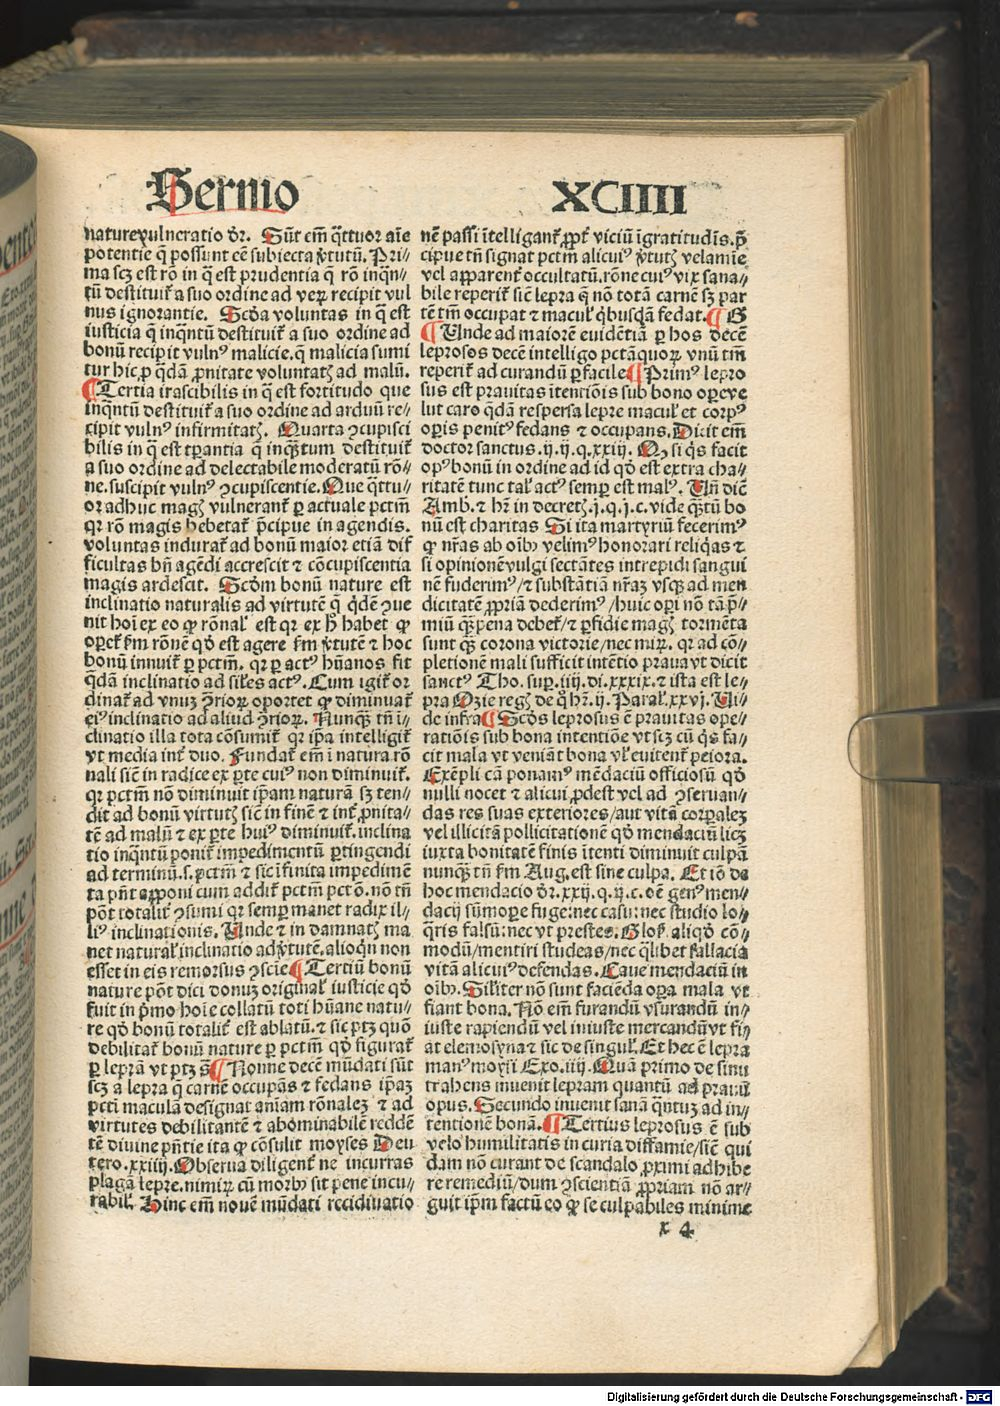 Sermo XCIIII
nature vulneratio dr̄. Sūt em̄ q̄ttuor aīe
potentie q̄ possunt eē subiecta v̓tutū. Pri-
ma scꝫ est rō in q̄ est prudentia q̄ rō inq̄n-
tū destituit̄ a suo ordine ad veꝝ recipit vul
nus ignorantie. Scd̄a voluntas in q̄ est
iusticia q̄ inqn̄tū destituit̄ a suo ordine ad
bonū recipit vulnꝰ malicie. q̄ malicia sumi
tur hic ꝓ q̄dā ꝓnitate voluntatꝭ ad malū.
¶ Tertia irascibilis in q̄ est fortitudo que
inqn̄tū destituit̄ a suo ordine ad arduū re-
cipit vulnꝰ infirmitatꝭ. Quarta ꝯcupisci
bilis in q̄ est tꝑantia q̄ inqꝫtum destituit̄
a suo ordine ad delectabile moderatū rō-
ne. suscipit vulnꝰ ꝯcupiscentie. Que q̄ttu-
or adhuc magꝭ vulnerant̄ ꝑ actuale pctm̄.
qꝛ rō magis hebetat̄ p̄cipue in agendis.
voluntas indurat̄ ad bonū maior etiā dif
ficultas bn̄ agēdi accrescit ⁊ cōcupiscentia
magis ardescit. Scd̄m bonū nature est
inclinatio naturalis ad virtutē q̄ q̄dē ꝯue
nit hoī ex eo ꝙ rōnal̓ est qꝛ ex hꝰ habet ꝙ
oꝑet̄ ẜm rōnē qd̄ est agere ẜm v̓tutē ⁊ hoc
bonū innuit̄ ꝑ pctm̄. qꝛ ꝑ actꝰ hūanos fit
q̄dā inclinatio ad siles actꝰ. Cum igit̄ or
dinat̄ ad vnuꝫ ꝯrioꝝ oportet ꝙ diminuat̄
eiꝰ inclinatio ad aliud ꝯrioꝝ. Nunqꝫ tn̄ i-
clinatio illa tota cōsumit̄ qꝛ ip̄a intelligit̄
vt media int̓ duo. Fundat̄ em̄ ī natura rō
nali sicē in radice ex ꝑte cuiꝰ non diminuit̄.
qꝛ pctm̄ nō diminuit ip̄am naturā sꝫ ten-
dit ad bonū virtutꝭ sicē in finē ⁊ int̓ ꝓnita-
tē ad malū ⁊ ex ꝑte huiꝰ diminuit̄. inclina
tio inqn̄tū ponit̄ impedimentū ꝑtingendi
ad terminū. s. pctm̄ ⁊ sic īfinita impedimē
ta pn̄t apponi cum addit̄ pctm̄ pctō. nō tn̄
pōt totalit̓ ꝯsumi qꝛ semꝑ manet radix il-
liꝰ inclinationis. Unde ⁊ in damnatꝭ ma
net natural̓ inclinatio ad v̓tutē. alioqn̄ non
esset in eis remorsus ꝯscīe ¶ Tertiū bonū
nature pōt dici donuꝫ original̓ iusticie qd̄
fuit in p̓mo hoīe collatū toti hūane natu-
re qd̄ bonū totalit̓ est ablatū. ⁊ sic ptꝫ quō
debilitat̄ bonū nature ꝑ pctm̄ qd̄ figurat̄
ꝑ leprā vt ptꝫ s̄ ¶ Nonne decē mūdati sūt
scꝫ a lepra q̄ carnē occupās ⁊ fedans ip̄aꝫ
pcti maculā designat aniam rōnaleꝫ ⁊ ad
virtutes debilitantē ⁊ abominabilē reddē
tē divine pn̄tie ita ꝙ cōsulit moyses Deu
tero. xxiiij. Observa diligent̓ ne incurras
plagā lepre. nimiꝝ cū morbꝰ sit pene incu-
rabil̓. Hinc em̄ novē mūdati recidiuatio
nē passi ītelligant̄ ꝓpt̓ viciū īgratitudīs. p̄
cipue tn̄ signat pctm̄ alicuiꝰ v̓tutꝭ velamīe
vel apparent̓ occultatū. rōne cuiꝰ vix sana-
bile reperit̄ sicē lepra q̄ nō totā carnē sꝫ par
tē tm̄ occupat ⁊ macul̓ qbusdā fedat. ¶ G
¶ Unde ad maiorē euidētiā ꝑ hos decē
leprosos decē intelligo pctā quoꝝ vnū tm̄
reperit̄ ad curandū ꝑfacile ¶ Primꝰ lepro
sus est prauitas ītentiōis sub bono opere ve
lut caro q̄dā respersa lepre macul̓ et corpꝰ
oꝑis penitꝰ fedans ⁊ occupans. Dicit em̄
doctor sanctus. ij. ij. q. xxiij. Qꝫ si q̓s facit
opꝰ bonū in ordine ad id qd̄ est extra cha-
ritatē tunc tal̓ actꝰ semꝑ est malꝰ. Un̄ dicē
Amb. ⁊ hr̄ in decretꝭ. j. q. j. c. vide q̄ꝫtū bo
nū est charitas Si ita martyriū fecerimꝰ
ꝙ nr̄as ab oībꝰ velimꝰ honorari reliq̓as ⁊
si opinionē vulgi sectātes intrepidi sangui
nē fuderimꝰ/⁊ substātiā nr̄aꝫ vsqꝫ ad men
dicitatē ꝓpriā dederimꝰ/huic oꝑi nō tā p̄-
miū qꝫ pena debet̄/⁊ ꝑfidie magꝭ tormēta
sunt qꝫ corona victorie/nec miꝝ. qꝛ ad cō-
pletionē mali sufficit intētio praua vt dicit
sanctꝰ Tho. suꝑ. iiij. di. xxxix. ⁊ ista est le-
pra Ozie regꝭ de q̓ hr̄. ij. Paral̓. xxvj. Ui-
de infra ¶ Scd̄s leprosus ē prauitas ope-
ratiōis sub bona intentiōe vt scꝫ cū q̓s fa-
cit mala vt veniāt bona vl̓ euitent̄ peiora.
Exēpli cā ponamꝰ mēdaciū officiosū qd̄
nulli nocet ⁊ alicui ꝓdest vel ad ꝯseruan-
das res suas exteriores/aut vitā corꝑaleꝫ
vel illicitā pollicitationē qd̄ mendaciū licꝫ
iuxta bonitatē finis ītenti diminuit culpā
nunqꝫ tn̄ ẜm Aug. est sine culpa. Et iō de
hoc mendacio dr̄. xxij. q. ij. c. oē genꝰ men-
dacij sūmoꝑe fuge: nec casu: nec studio lo-
q̓ris falsū: nec vt prestes. Glos̓. aliqd̄ cō-
modū/mentiri studeas/nec q̓libet fallacia
vitā alicuiꝰ defendas. Caue mendaciū in
oībꝰ. Silit̓er nō sunt faciēda oꝑa mala vt
fiant bona. Nō em̄ furandū vsurandū in-
iuste rapiendū vel iniuste mercandū vt fi-
at elemosyna ⁊ sic de singul̓. Et hec ē lepra
manꝰ moysi Exo. iiij. Quā primo de sinu
trahens inuenit lepram quantū ad prauū
opus. Secundo inuenit sanā q̄ntuꝫ ad in-
tentionē bonā. ¶ Tertius leprosus ē sub
velo humilitatis incuria diffamie/sicē qui
dam nō curant de scandalo ꝓximi adhibe
re remediū/dum ꝯscientiā ꝓpriam nō ar-
guit ip̄m factū eo ꝙ se culpabiles minime
x 4
Digitalisierung gefördert durch die Deutsche Forschungsgemeinschaft - DFG